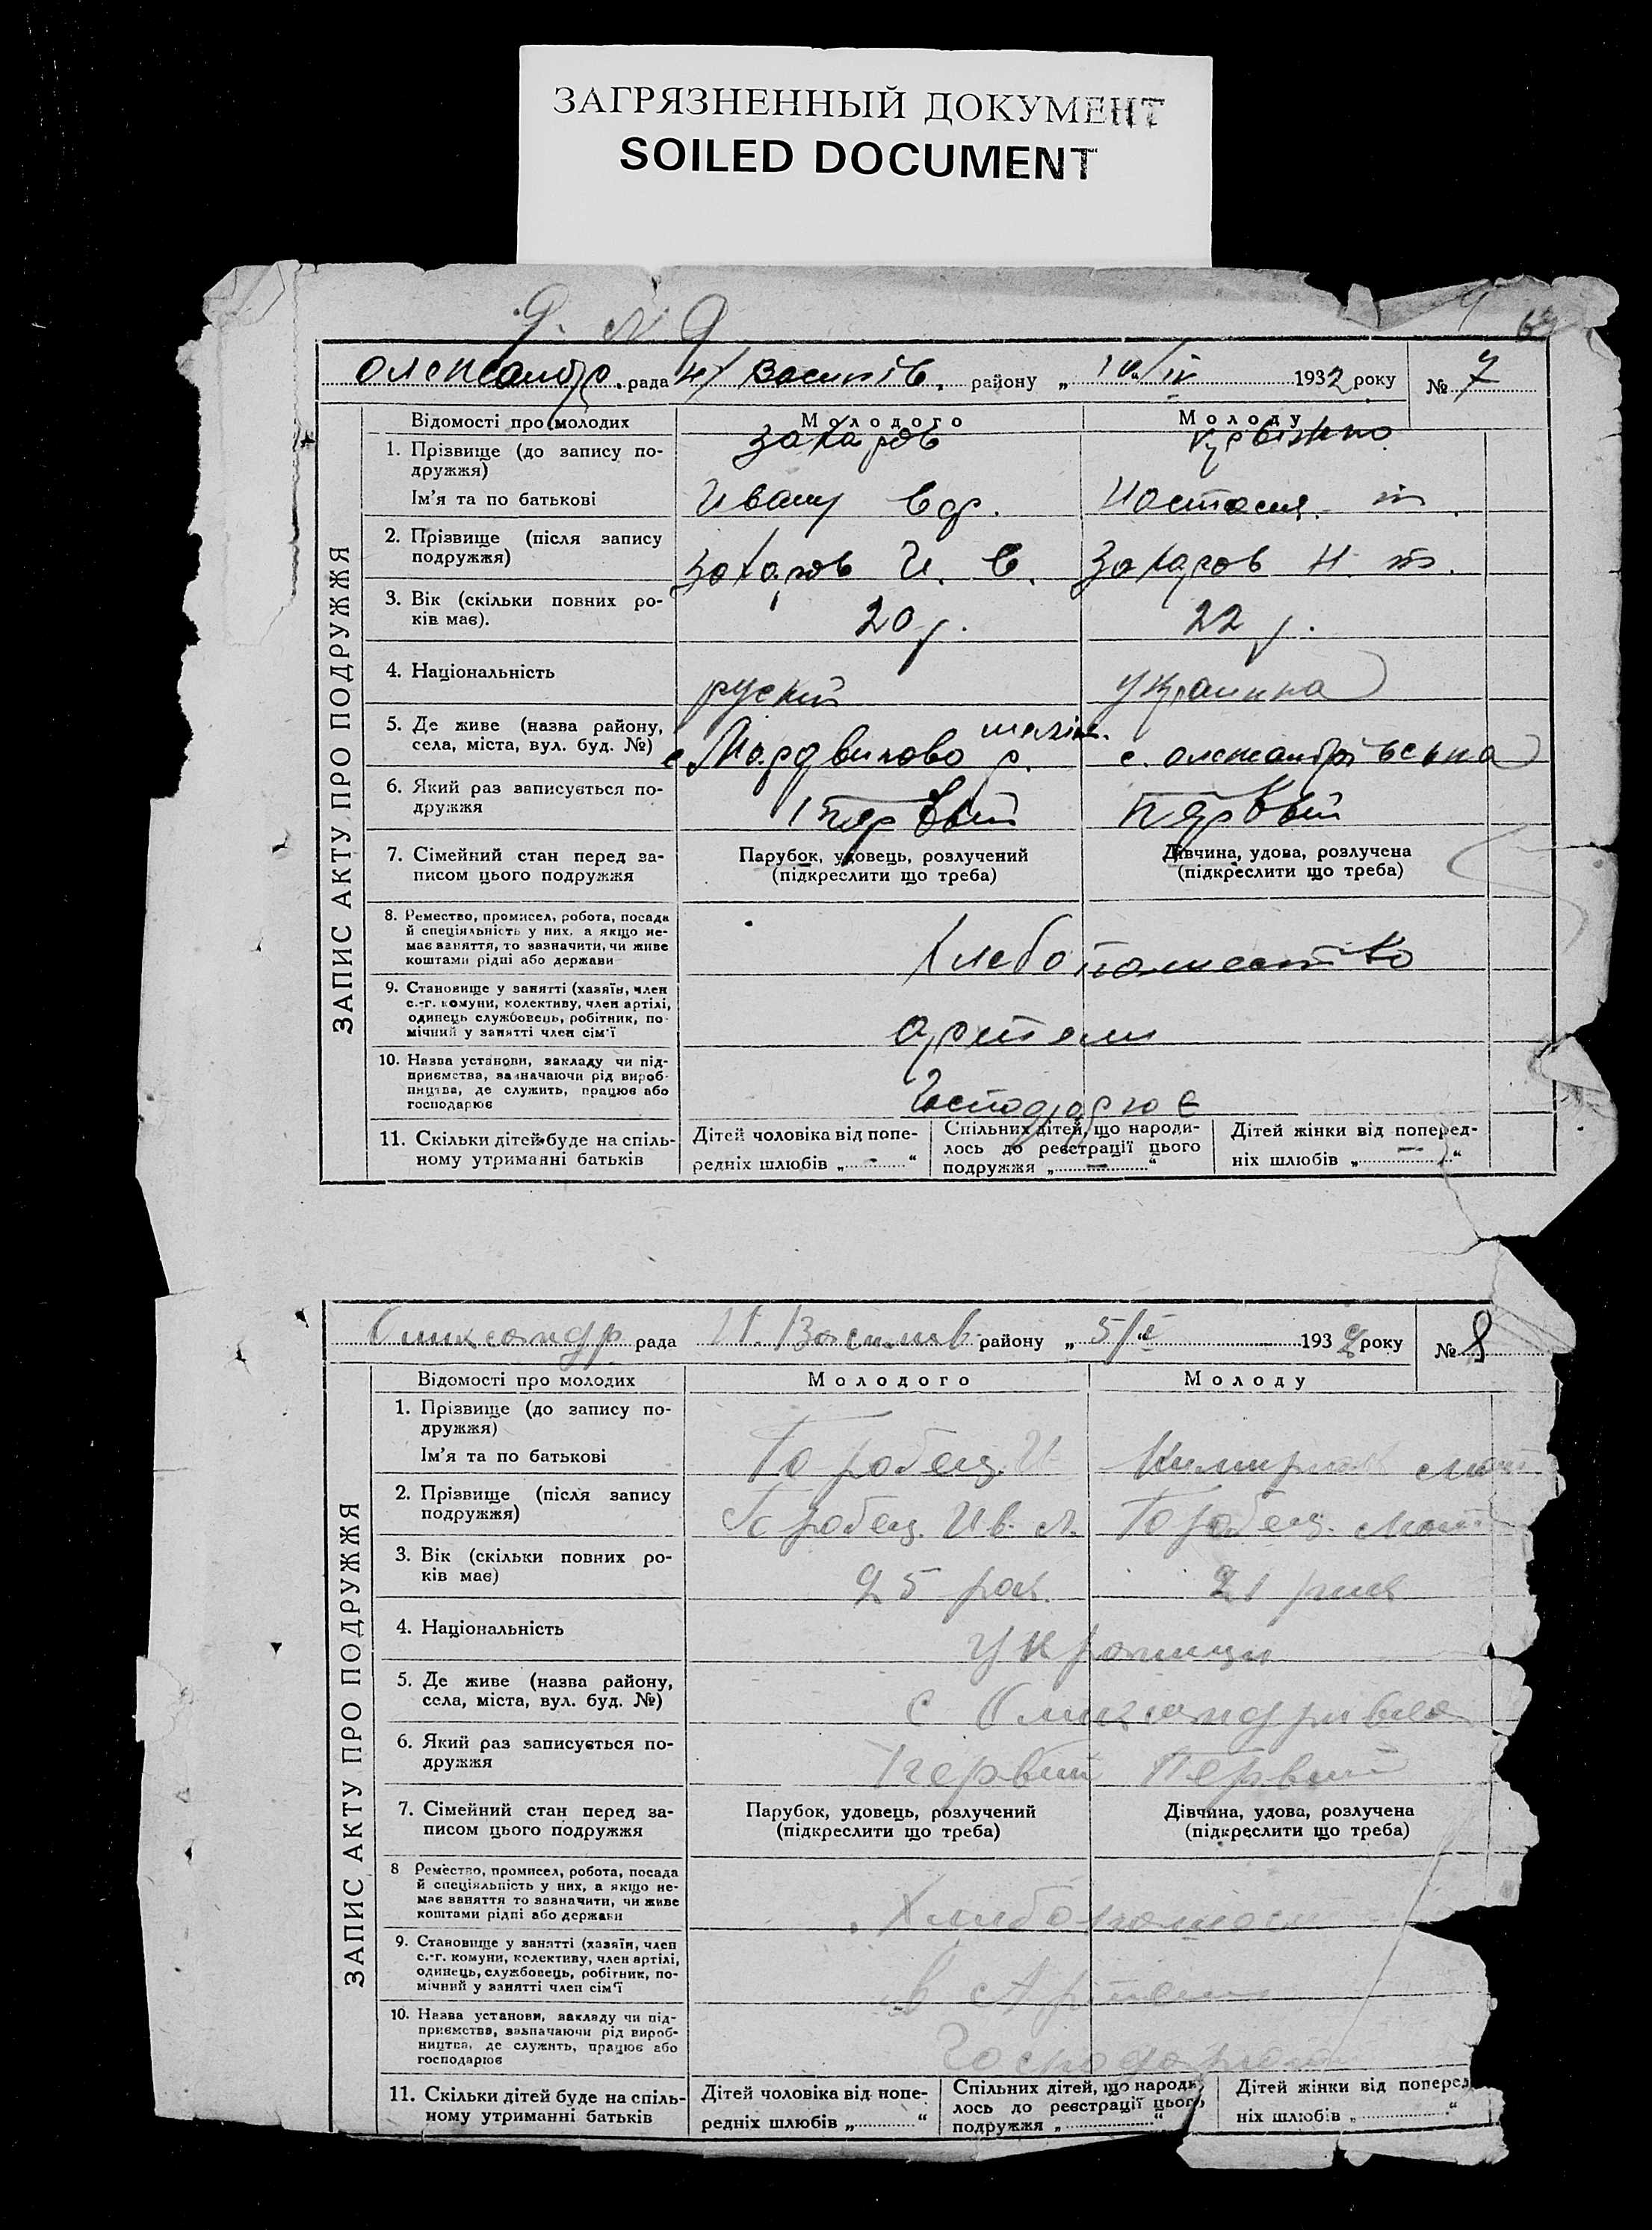 ЗАГРЯЗНЕННЫЙ ДОКУМЕНТ
SOILED DOCUMENT
Олександр. рада Н/Василів. району „ 10/IV 1932 року № 7
ЗАПИС АКТУ ПРО ПОДРУЖЖЯ
Відомості про молодих Молодого Молоду
1. Прізвище (до запису по-
дружжя) Захаров
Ім'я та по батькові Ивану Еф. Настасия. т.
2. Прізвище (після запису
подружжя) Захаров И. Е. Захаров Н. т.
3. Вік (скільки повних ро-
ків має). 20 р. 22 р.
4. Національність руский украинка
5. Де живе (назва району,
села, міста, вул. буд. №) с. Мордвиново р. с. олександрівська
6. Який раз записується по-
дружжя 1 первый первый
7. Сімейний стан перед за-
писом цього подружжя
Парубок, удовець, розлучений
(підкреслити що треба)
Дівчина, удова, розлучена
(підкреслити що треба)
8. Ремество, промисел, робота, посада
й спеціяльність у них, а якщо не-
має заняття, то зазначити, чи живе
коштами рідні або держави
9. Становище у занятті (хазяїн, член
с.-г. комуни, колективу, член артілі,
одинець службовець, робітник, по-
мічний у занятті член сім'ї
артели
10. Назва установи, закладу чи під-
приємства, зазначаючи рід вироб-
ництва, де служить, працює або
господарює
Господарює
11. Скільки дітей буде на спіль-
ному утриманні батьків
Дітей чоловіка від попе-
редніх шлюбів „ - “
Спільних дітей, що народи-
лось до реєстрації цього
подружжя „ - “
Дітей жінки від поперед-
ніх шлюбів „ - “
рада Н. Василів району „ 5/V 1932 року № 8
ЗАПИС АКТУ ПРО ПОДРУЖЖЯ
Відомості про молодих Молодого Молоду
1. Прізвище (до запису по-
дружжя)
Ім'я та по батькові Горобец И
2. Прізвище (після запису
подружжя) Горобец. Ив. Горобец.
3. Вік (скільки повних ро-
ків має) 25 рок. 21 рик
4. Національність украинци
5. Де живе (назва району,
села, міста, вул. буд. №) с
6. Який раз записується по-
дружжя Первий Первий
7. Сімейний стан перед за-
писом цього подружжя
Парубок, удовець, розлучений
(підкреслити що треба)
Дівчина, удова, розлучена
(підкреслити що треба)
8 Ремество, промисел, робота, посада
й спеціяльність у них, а якщо не-
має заняття то зазначити, чи живе
коштами рідні або держави
9. Становище у занятті (хазяїн, член
с.-г. комуни, колективу, член артілі,
одинець, службовець, робітник, по-
мічний у занятті член сім'ї
в Артели
10. Назва установи, закладу чи під-
приємства, зазначаючи рід вироб-
ництва, де служить, працює або
господарює
11. Скільки дітей буде на спіль-
ному утриманні батьків
Дітей чоловіка від попе-
редніх шлюбів „ “
Спільних дітей, що народи-
лось до реєстрації цього
подружжя „ “
Дітей жінки від поперед
ніх шлюбів „ “